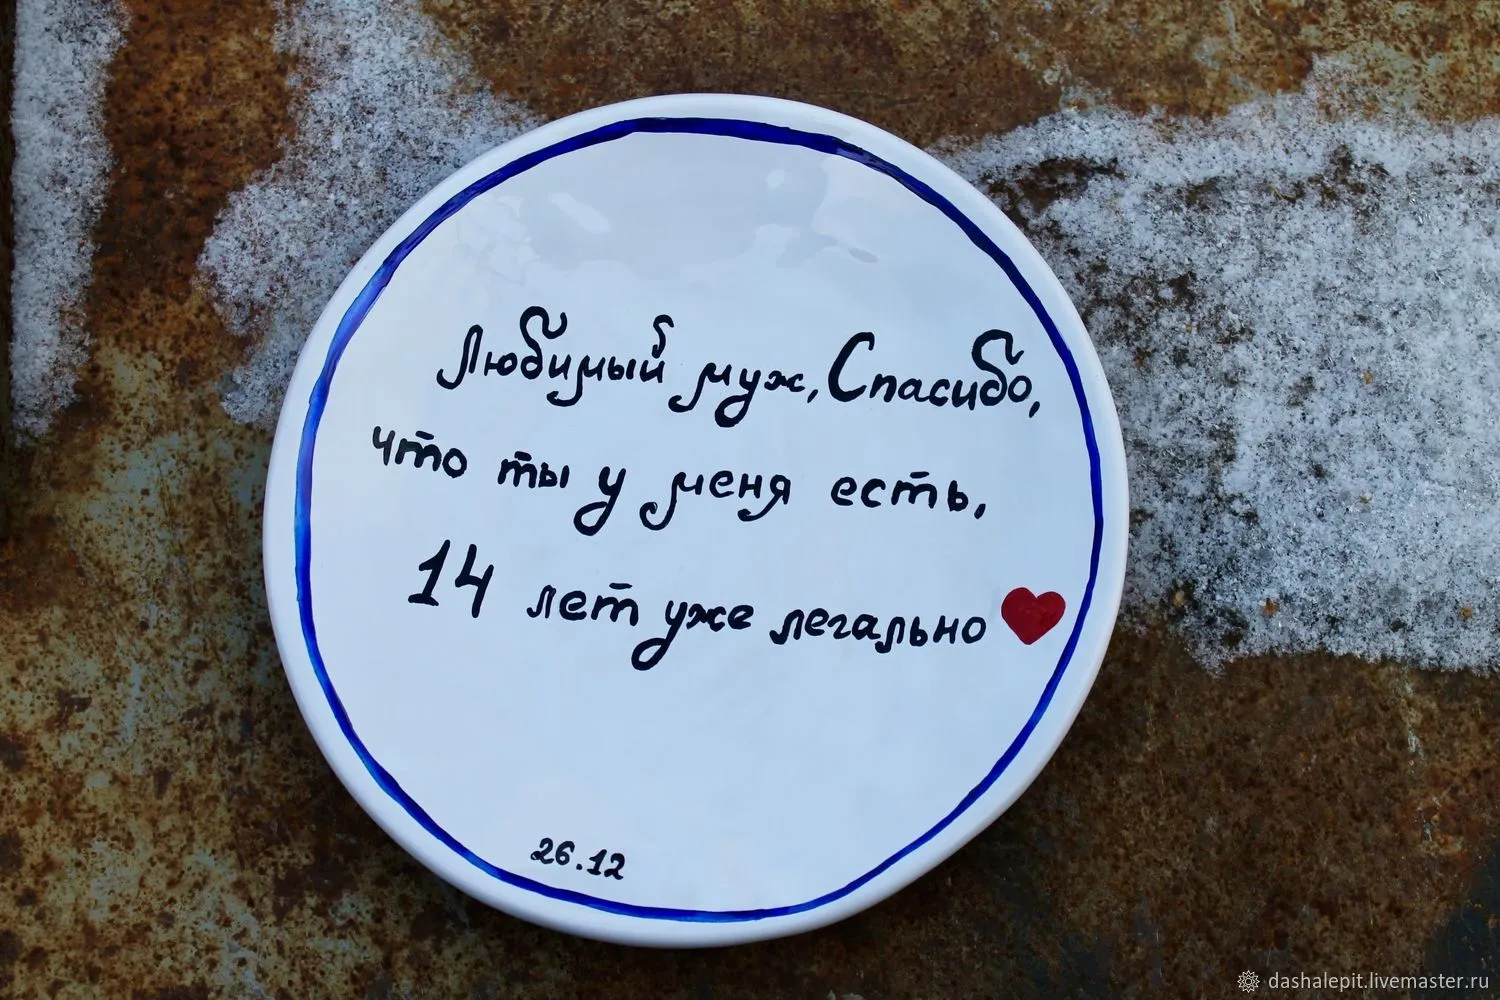 Любимый муж, Спасибо,
что ты у меня есть,
14 лет уже легально
26.12
dashalepit.livemaster.ru